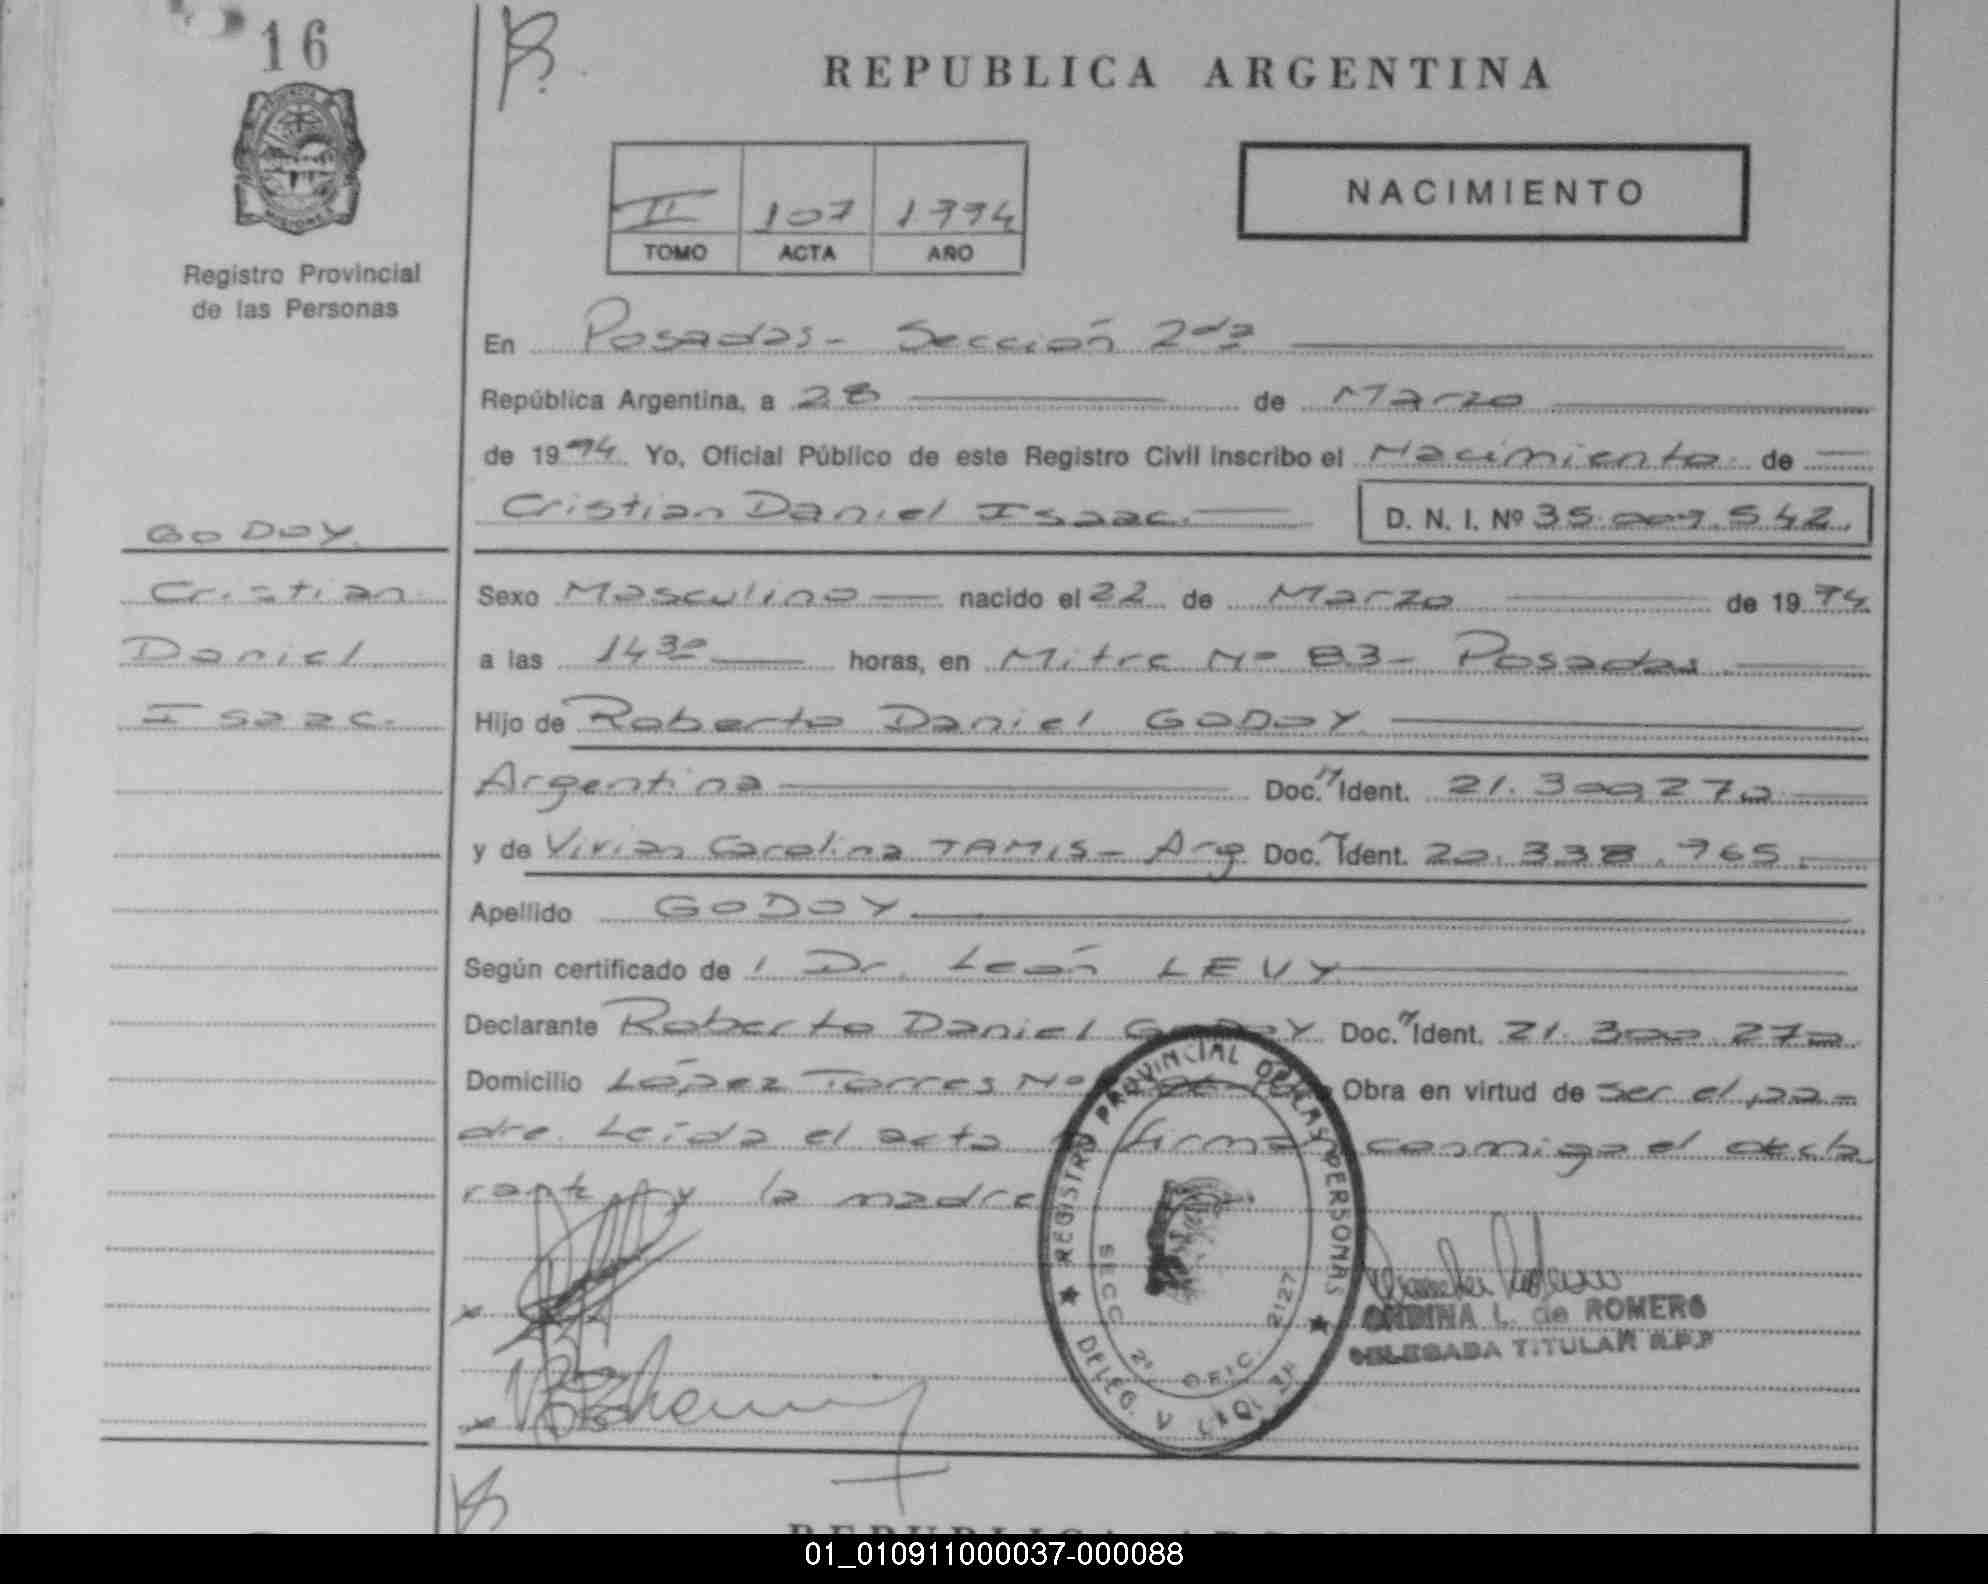 16
REPUBLICA ARGENTINA
II 107 1994
TOMO ACTA AÑO
NACIMIENTO
Registro Provincial
de las Personas
En Posadas - Sección 2da
República Argentina, a 28 de Marzo
de 1994 Yo, Oficial Público de este Registro Civil inscribo el Nacimiento de
Cristian Daniel Isaac. D. N. I. Nº 35.009.542.
GODOY.
Cristian
Daniel
Isaac.
Sexo Masculino nacido el 22 de Marzo de 1994
a las 14 30 horas, en Mitre Nº 83 - Posadas
Hijo de Roberto Daniel GODOY.
Argentina Doc. Ident. 21.300270
y de Vivian Carolina TAMIS - Arg Doc. Ident. 20.338.965.
Apellido GODOY
Según certificado de 1 Dr. León LEVY
Declarante Roberto Daniel GODOY Doc. Ident. 21.300.270
Domicilio López Torres Nº Obra en virtud de ser el pa-
dre. Leída el acta firma conmigo el decla
rante y la madre
REGISTRO PROVINCIAL DE LAS PERSONAS
SECC. 2ª OFIC. 2127
DELEG.
ONDINA L. de ROMERO
DELEGADA TITULAR R.P.P
REPUBLICA ARGENTINA
01_010911000037-000088